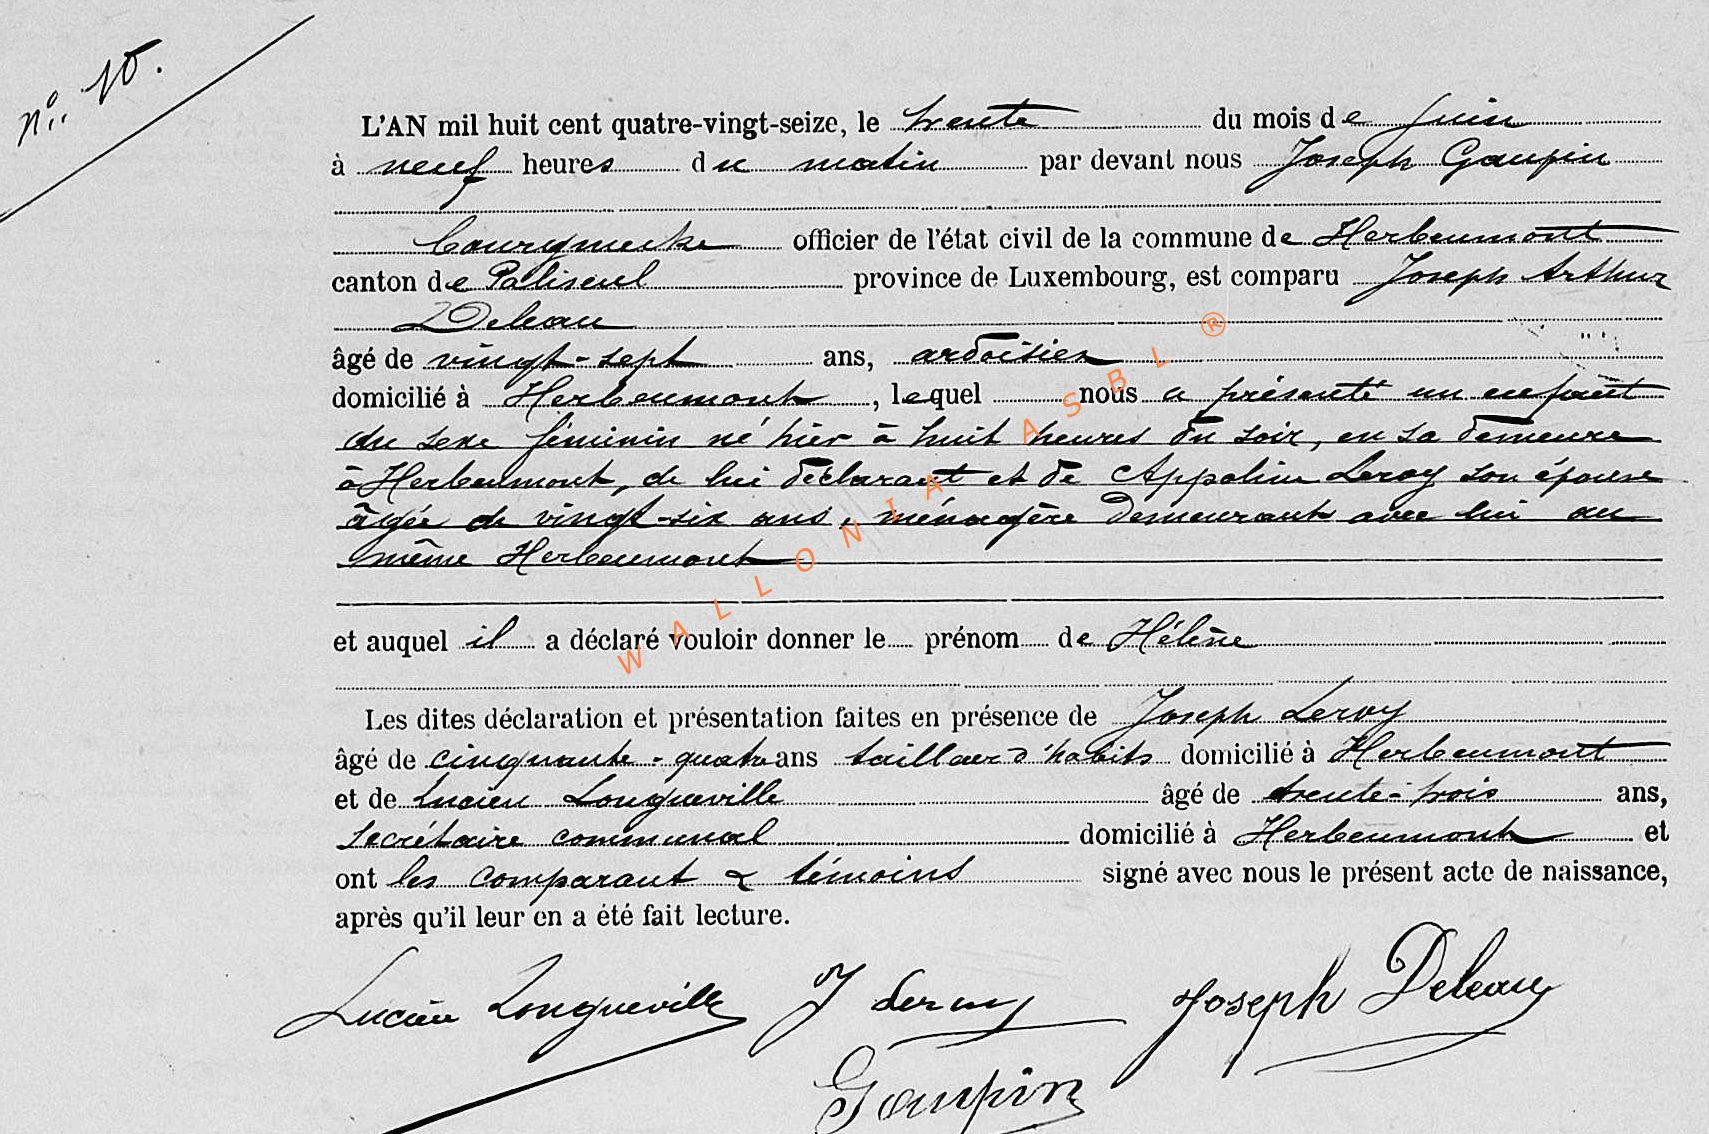 n° 15.
L'AN mil huit cent quatre-vingt-seize, le trente du mois de Juin
à neuf heures du matin par devant nous Joseph Gaupin
Bourgmestre officier de l'état civil de la commune de Herbeumont
canton de Paliseul province de Luxembourg, est comparu Joseph Arthur
Deleau
âgé de vingt-sept ans, ardoisier
domicilié à Herbeumont, lequel nous a présenté un enfant
du sexe féminin né hier à huit heures du soir, en sa demeure
à Herbeumont, de lui déclarant et de Appoline Leroy son épouse
âgée de vingt-six ans, ménagère demeurant avec lui au
même Herbeumont
et auquel il a déclaré vouloir donner le prénom de Hélène
Les dites déclaration et présentation faites en présence de Joseph Leroy
âgé de cinquante-quatre ans tailleur d'habits domicilié à Herbeumont
et de Lucien Longueville âgé de trente-trois ans,
secrétaire communal domicilié à Herbeumont et
ont les comparant & témoins signé avec nous le présent acte de naissance,
après qu'il leur en a été fait lecture.
Lucien Longueville J Leroy Joseph Deleau
Gaupin
WALLONIA ASBL ®